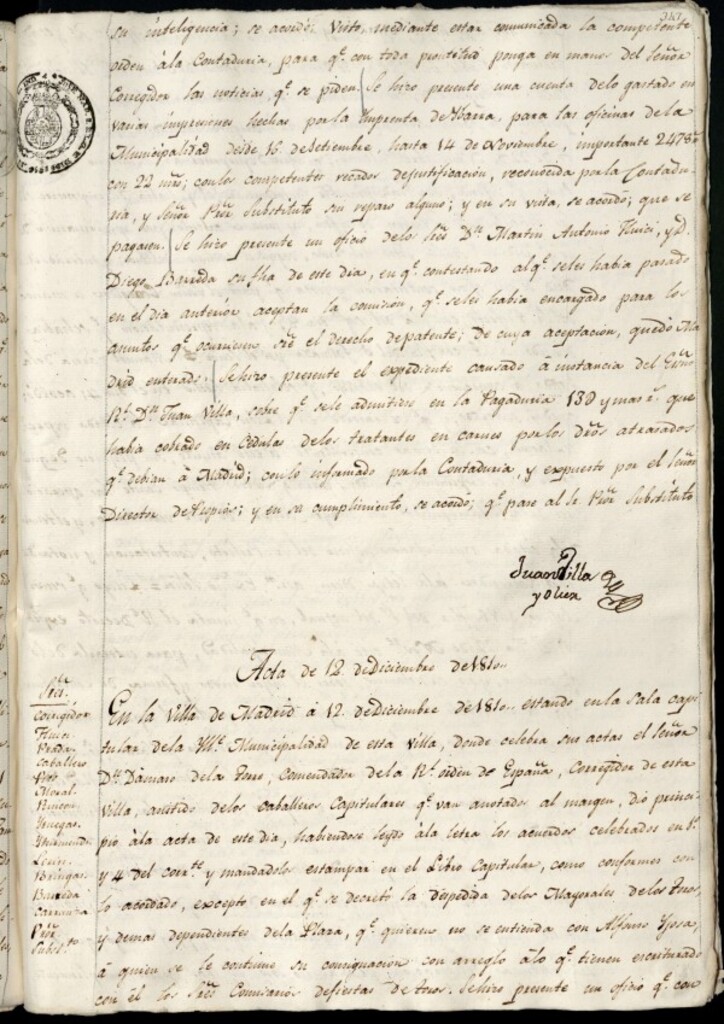 su inteligencia; se acordó: Visto, mediante estar comunicada la competente
orden à la Contaduria, para q.e con toda prontitud ponga en manos del Señor
Corregidor las noticias, q.e se piden. Se hizo presente una cuenta delo gastado en
varias impresiones hechas por la Imprenta de Ibarra, para las oficinas de la
Municipalidad desde 16 de Setiembre, hasta 14 de Noviembre, importante 2478
con 22 mrs; con los competentes recados dejustificación, reconocida por la Contadu-
ria, y Señor Pror Substituto sin reparo alguno; y en su vista, se acordó; que se
paguen. Se hizo presente un oficio delos Sres Dn. Martin Antonio Huici, y D.
Diego Barreda su fha de este dia, en q.e contestando al q.e seles habia pasado
en el dia anterior aceptan la comision, q.e seles habia encargado para los
asuntos q.e ocurriesen sre el derecho depatente; de cuya aceptacion, quedó Ma-
drid enterado. Sehizo presente el expediente causado à instancia del
Dn. Juan Villa, sobre q.e sele admitiese en la Pagaduria 13 y mas r.s que
habia cobrado en Cédulas delos tratantes en carnes por los dros atrasados
q.e debian à Madrid; con lo informado por la Contaduria, y expuesto por el Señor
Director de Propios; y en su cumplimiento, se acordó; q.e pase al Sr Pror Substituto
Juan Villa
y Olier
Acta de 12 de Diciembre de 1810.
Sres.
Corregidor
Huici
Prada
Caballero
Moral
Rincon
Leon
Barreda
Carranza
Pror
Subst.to
En la Villa de Madrid à 12 de Diciembre de 1810. estando en la Sala capi-
tular dela Municipalidad de esta Villa, donde celebra sus actas el Señor
Dn. Dámaso dela Torre, Comendador de la Rl. orden de España, Corregidor de esta
Villa, asistido delos caballeros Capitulares q.e van anotados al margen, dio princi-
pio àla acta de este dia, habiendose leydo àla letra los acuerdos celebrados en 1.o
y 4 del corr.te y mandadolos estampar en el Libro Capitular, como conformes con
lo acordado, excepto en el q.e se decretó la despedida delos Mayorales delos Toros,
y demas dependientes dela Plaza, q.e quieren no se entienda con Alfonso
à quien se le continue su consignacion con arreglo àlo q.e tienen escriturado
con él los Sres Comisarios defiestas de Toros. Sehizo presente un oficio q.e con